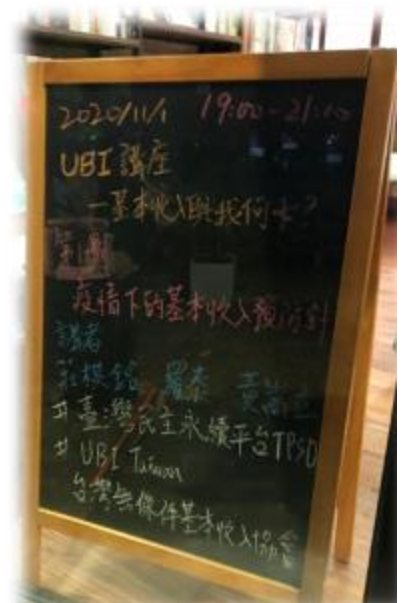 2020/11/1 19:00-21:00
UBI 講座
—基本收入與我何干?
疫情下的基本收入預防針
講者
羅泰 黃崇立
# 臺灣民主永續平台TPSD
# UBI Taiwan
台灣無條件基本收入協會